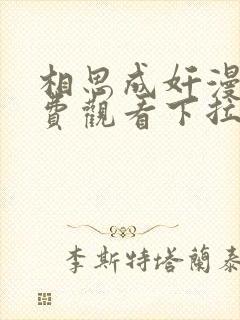 相思成奸漫
費觀看下拉
李斯特塔蘭泰